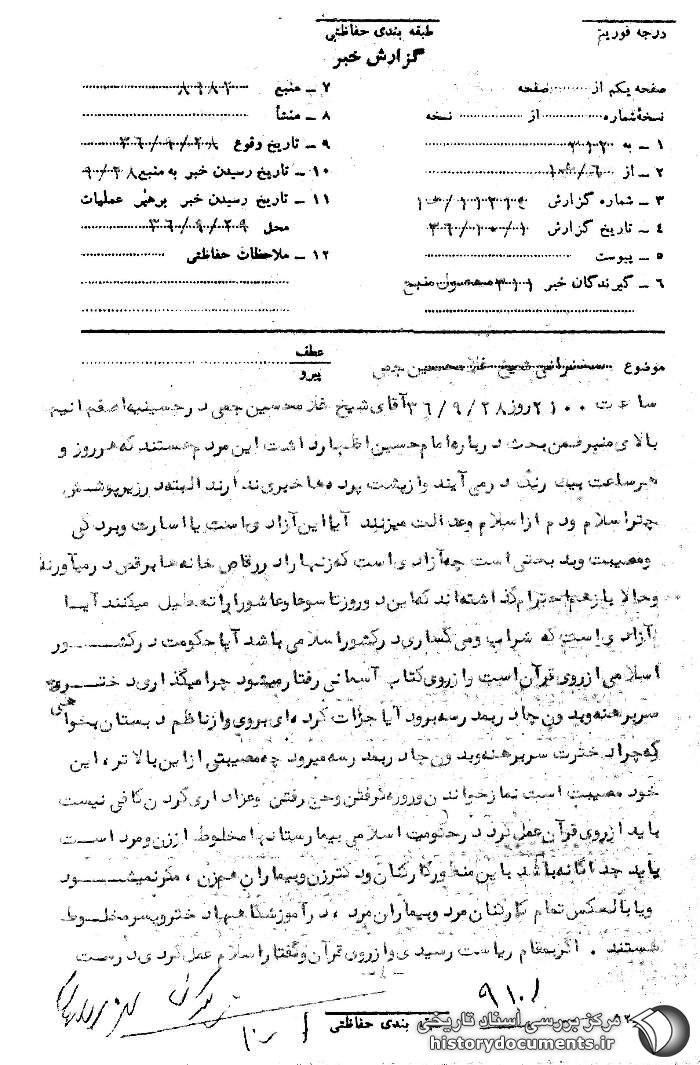 درجه فوریت
طبقه بندی حفاظتی
گزارش خبر
صفحه یکم از صفحه
نسخه شماره از نسخه
۱ ـ به ۳۱۲
۲ ـ از
۳ ـ شماره گزارش
۴ ـ تاریخ گزارش ۳۶/۱۰/۱
۵ ـ پیوست
۶ ـ گیرندگان خبر ۳۱۱ محصول منبع
۷ ـ منبع ۸۹۸۲
۸ ـ منشأ
۹ ـ تاریخ وقوع ۳۶/۹/۲۸
۱۰ ـ تاریخ رسیدن خبر به منبع ۹/۲۸
۱۱ ـ تاریخ رسیدن خبر برهبر عملیات
محل ۳۶/۹/۲۹
۱۲ ـ ملاحظات حفاظتی
موضوع سخنرانی شیخ غلامحسین جمی
عطف
پیرو
ساعت ۲۱۰۰ روز ۳۶/۹/۲۸ آقای شیخ غلامحسین جمی در حسینیه اصفهانیها
بالای منبر ضمن بحث درباره امام حسین اظهار داشت این مردم هستند که هر روز و
هر ساعت بیک رنگ در می آیند و از پشت پرده ها خبری ندارند البته در زیر پوشش
چتر اسلام و دم از اسلام و عدالت میزنند آیا این آزادی است یا اسارت و بردگی
و مصیبت و بدبختی است چه آزادی است که زنها را در رقاص خانه ها برقص در میآورند
و حالا باز هم احترام گذاشته اند که این دو روز تاسوعا و عاشورا را تعطیل میکنند آیا
آزادی است که شراب و می گساری در کشور اسلامی باشد آیا حکومت در کشور
اسلامی از روی قرآن است و از روی کتاب آسمانی رفتار میشود چرا میگذاری دختری
سر برهنه و بدون چادر بمدرسه برود آیا جرأت کرده ای بروی و از ناظم دبستان بخواهی
که چرا دخترت سر برهنه و بدون چادر بمدرسه میرود چه مصیبتی از این بالاتر، این
خود مصیبت است نماز خواندن و روزه گرفتن و حج رفتن و عزاداری کردن کافی نیست
باید از روی قرآن عمل کرد در حکومت اسلامی بیمارستانها مخلوط از زن و مرد است
باید جداگانه باشد باین منظور کارکنان و دکتر زن و بیماران هم زن، مگر نمیشود
و یا بالعکس تمام کارکنان مرد و بیماران مرد، در آموزشگاهها دختر و پسر مخلوط
هستند. اگر بمقام ریاست رسیدی و از روی قرآن و گفتار اسلام عمل کردی درست
۹۱۰۱
طبقه بندی حفاظتی
مرکز بررسی اسناد تاریخی
historydocuments.ir